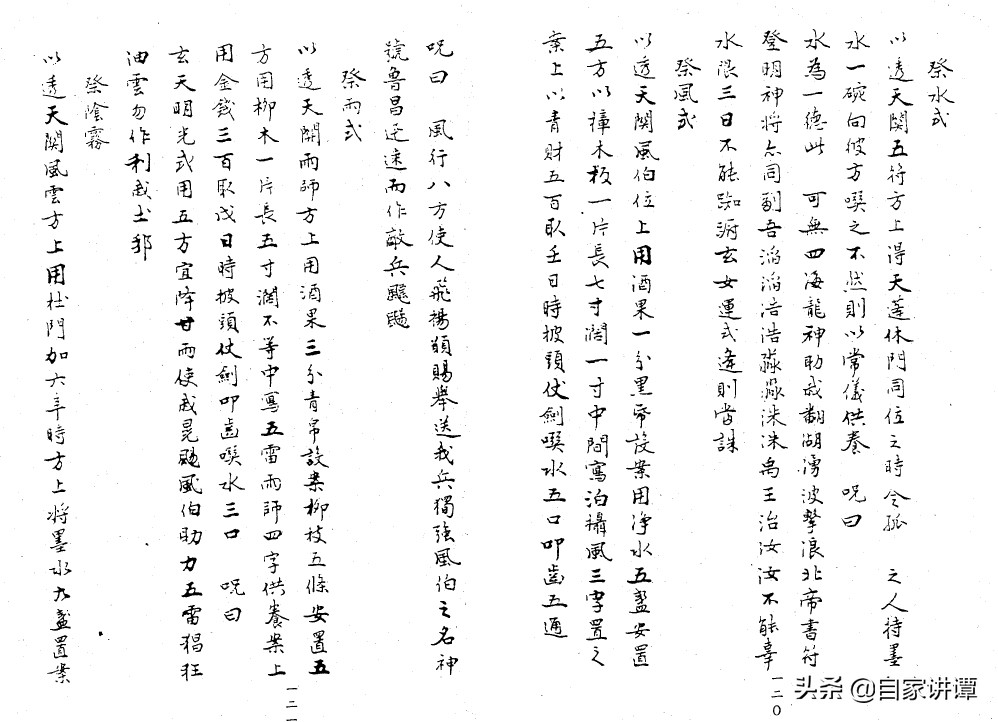 祭水式
以透天関五符方上得天蓬休門同位之時令孤 之人持墨
水一碗向彼方噀之不然則以常儀供養 呪曰
水為一德此 可無四海龍神助我翻湖湧波擊浪北帝書符
登明神將忝同副吾滔滔浩浩淼淼洙洙禹王治汝汝不能辜
水限三日不能踟蹰玄女運式違則當誅
祭風式
以透天関風伯位上用酒果一分黑帛設案用净水五盞安置
五方以樟木板一片長七寸濶一寸中間寫泊攝風三字置之
案上以青財五百臥壬日時披頭仗劍噀水五口叩齒五通
一二〇
呪曰 風行八方使人飛揚頟賜舉送我兵獨強風伯之名神
號魯昌迋速而作敵兵飈颺
祭雨式
以透天関雨師方上用酒果三分青帛設案柳枝五條安置五
方用柳木一片長五寸濶不等中寫五雷雨師四字供養案上
用金錢三百臥戊日時披頭仗劍叩齒噀水三口 呪曰
玄天明光式用五方宜降甘雨使我晃颺風伯助力五雷猖狂
油雲勿作利我土邦
祭陰霧
以透天関風雲方上用杜門加六辛時方上將墨水九盞置案
一二一
头条 @自家讲谭